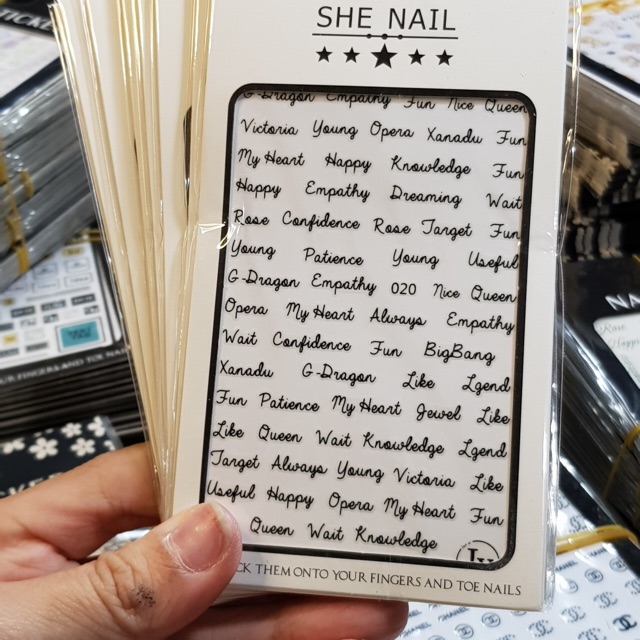 SHE NAIL
G-Dragon Empathy Fun Nice Queen
Victoria Young Opera Xanadu Fun
My Heart Happy Knowledge Fun
Happy Empathy Dreaming Wait
Rose Confidence Rose Target Fun
Young Patience Young Useful
G-Dragon Empathy 020 Nice Queen
Opera My Heart Always Empathy
Wait Confidence Fun BigBang
Xanadu G-Dragon Like Lgend
Fun Patience My Heart Jewel Like
Like Queen Wait Knowledge Lgend
Target Always Young Victoria Like
Useful Happy Opera My Heart Fun
Queen Wait Knowledge
THEM ONTO YOUR FINGERS AND TOE NAILS
FINGERS AND TOE NAILS
Rose
CHANEL